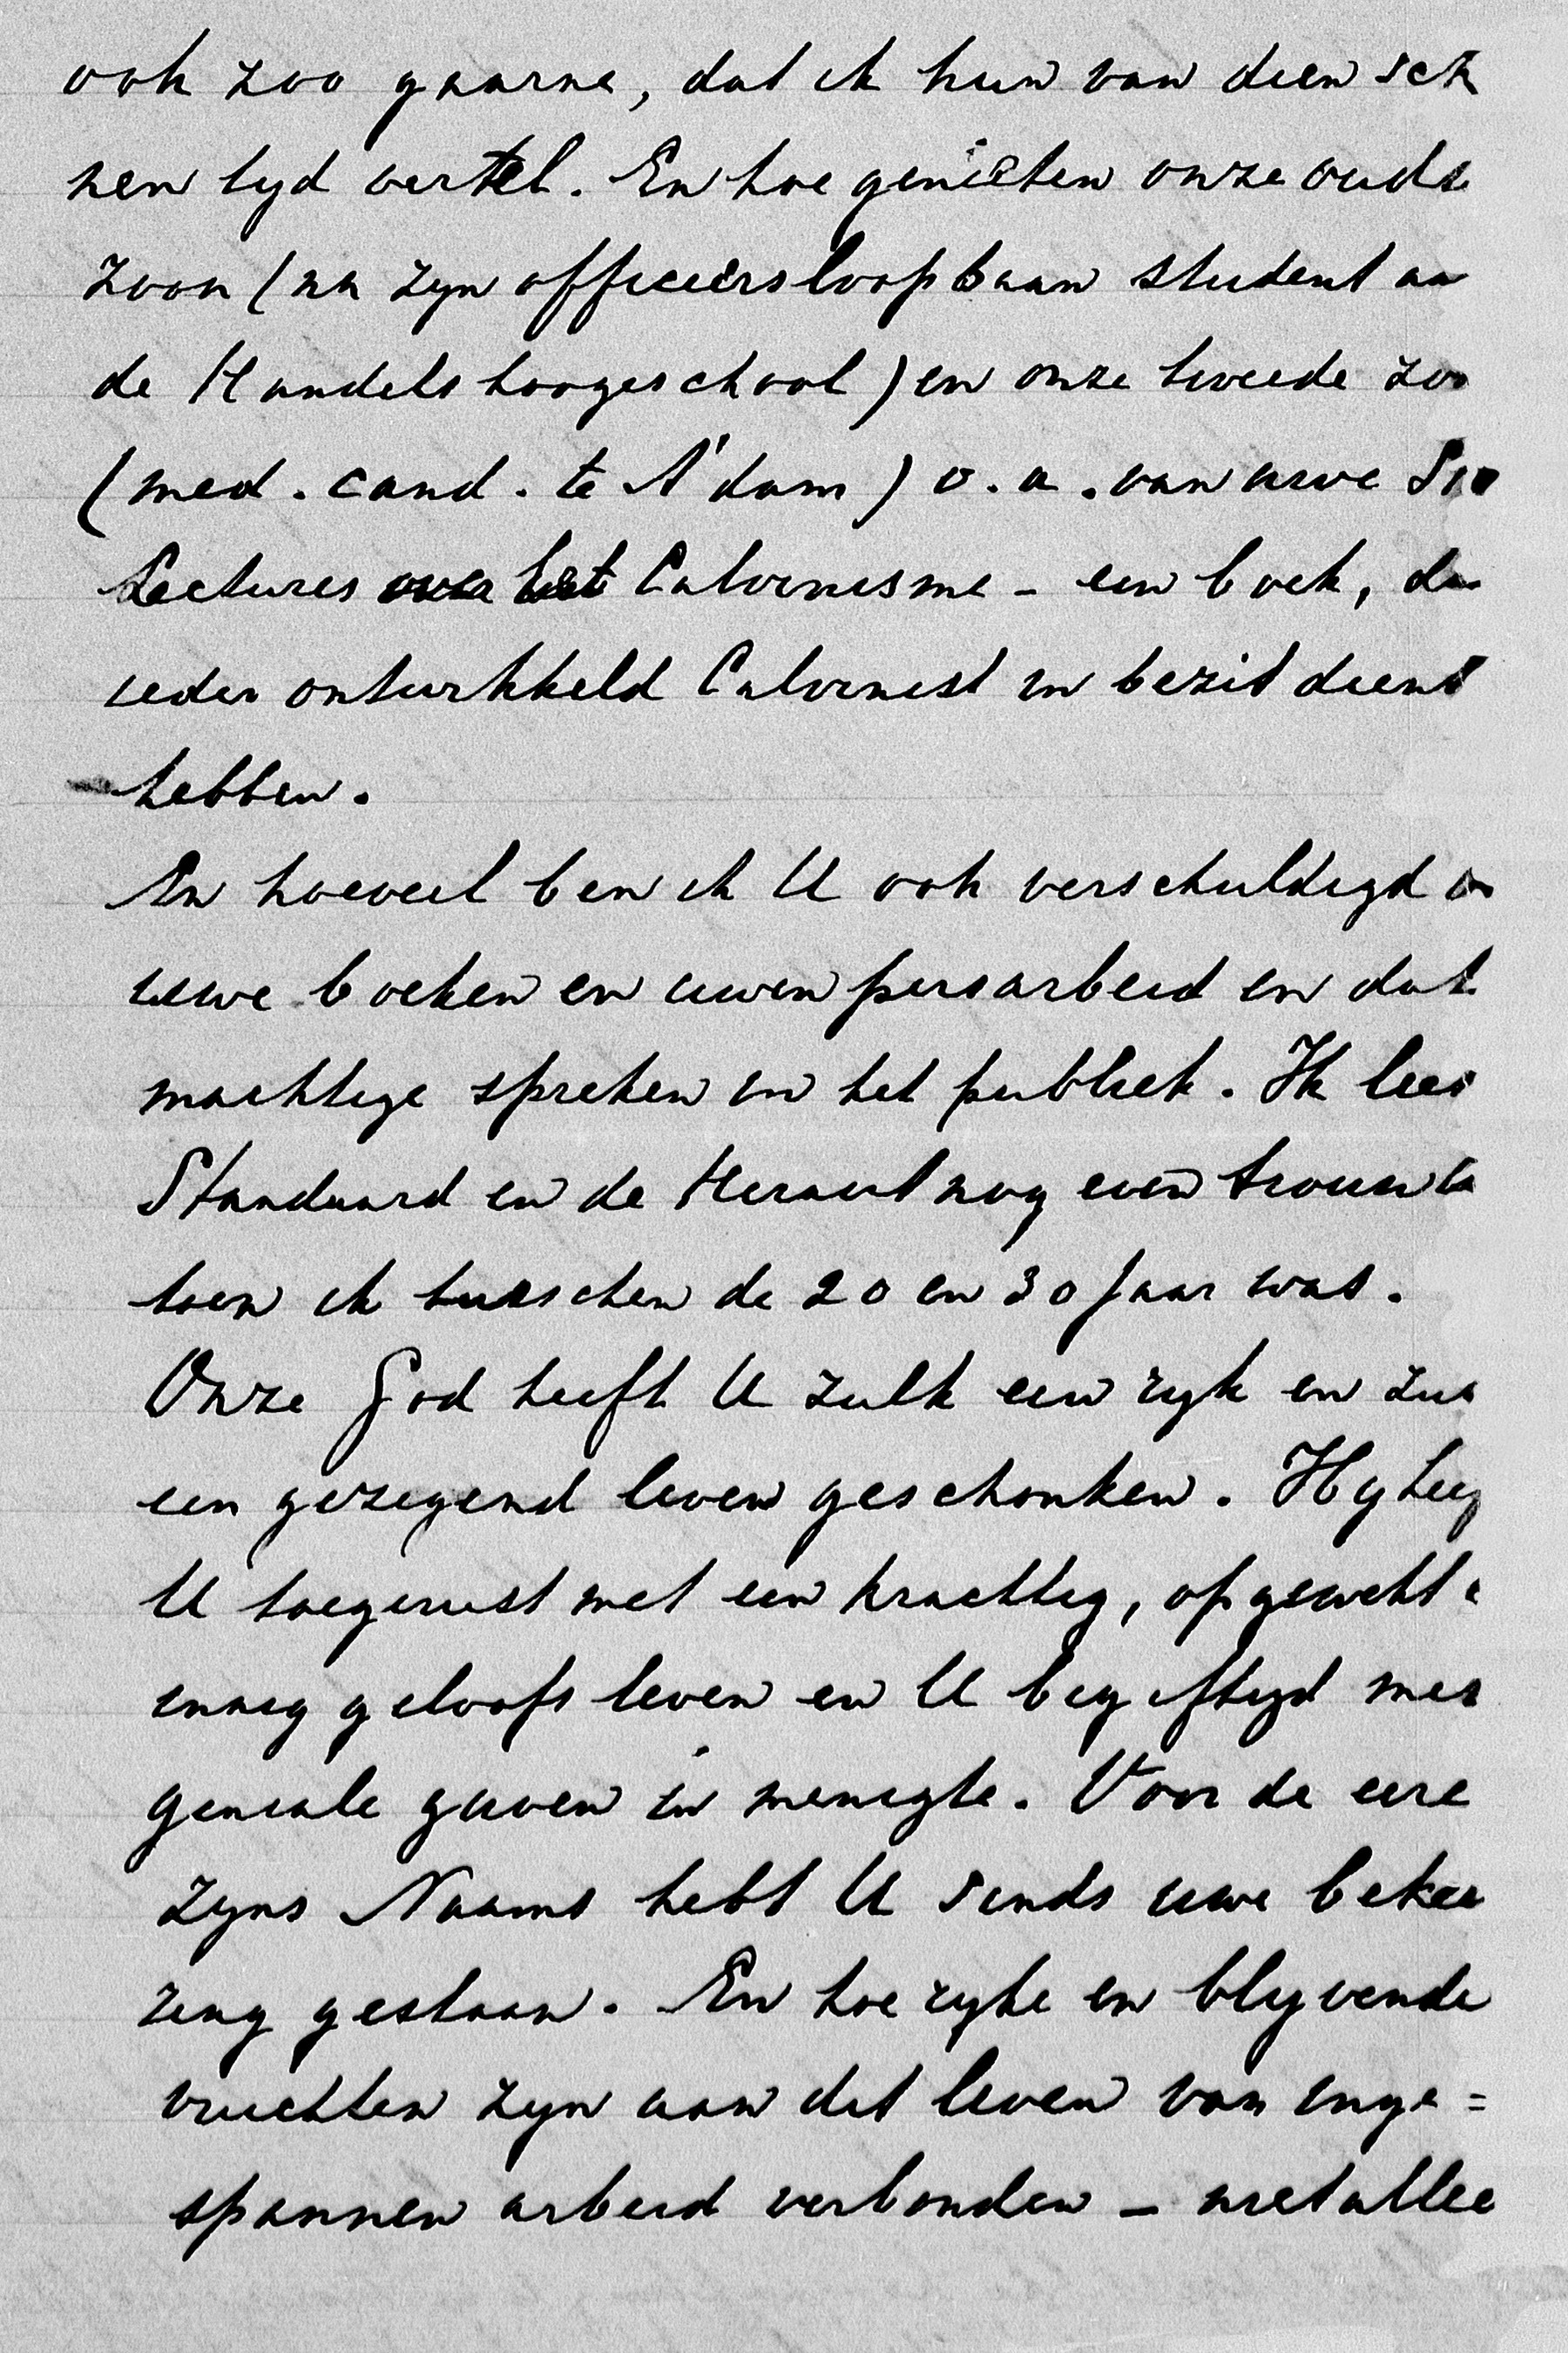 ook zoo gaarne, dat ik hun van dien sch
nen tyd vertel. En hoe genieten onze ouds
zoon (na zyn officiersloopbaan student aa
de Handelshoogeschool) en onze tweede zoo
(med. cand. te A'dam) o.a. van uwe
Lectures over het Calvinisme - een boek, da
ieder ontwikkeld Calvinist in bezit dient
hebben.
En hoeveel ben ik U ook verschuldigd
uwe boeken en uwen persarbeid en dat
machtige spreken in het publiek. Ik lees
Standaard en de Heraut nog even trouw
toen ik tusschen de 20 en 30 jaar was.
Onze God heeft U zulk een ryk en zu
een gezegend leven geschonken. Hy heef
U toegerust met een krachtig, opgewekt
innig geloofsleven en U begiftigd met
geniale gaven in menigte. Voor de eere
Zyns Naams hebt U sinds uwe bekee
ring gestaan. En hoe ryke en blyvende
vruchten zyn aan dit leven van inge=
spannen arbeid verbonden - niet allee